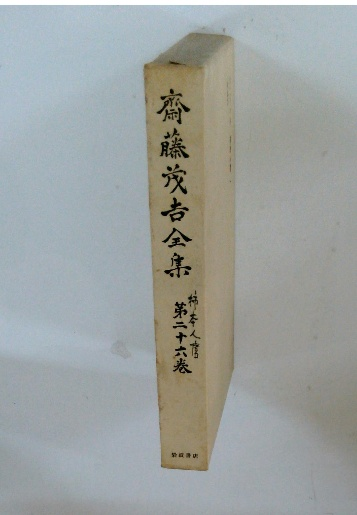 齋藤茂吉全集
柿本人麿
第二十六巻
岩波書店